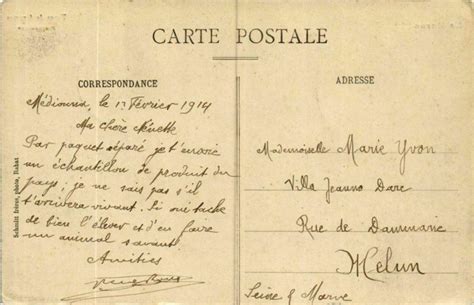 CARTE POSTALE
CORRESPONDANCE
Médiouna, le 1 Février 1914
Ma chère
Par paquet séparé je t'envoie
un échantillon de produit du
pays; je ne sais pas s'il
t'arrivera vivant. Si oui tache
de bien l'élever et d'en faire
un animal savant
Amitiés
ADRESSE
Mademoiselle Marie Yvon
Villa Jeanne Darc
Rue de Dammarie
Melun
Seine & Marne
Schmitt frères, photo, Rabat